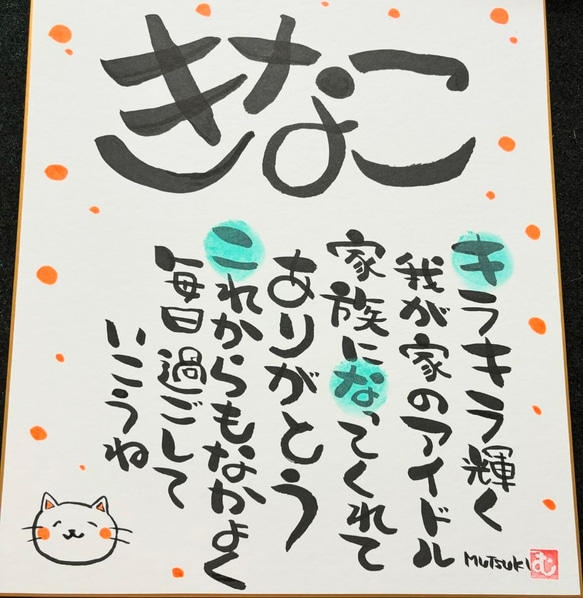 きなこ
キラキラ輝く
我が家のアイドル
家族になってくれて
ありがとう
これからもなかよく
毎日過ごして
いこうね
MUTSUKI
む